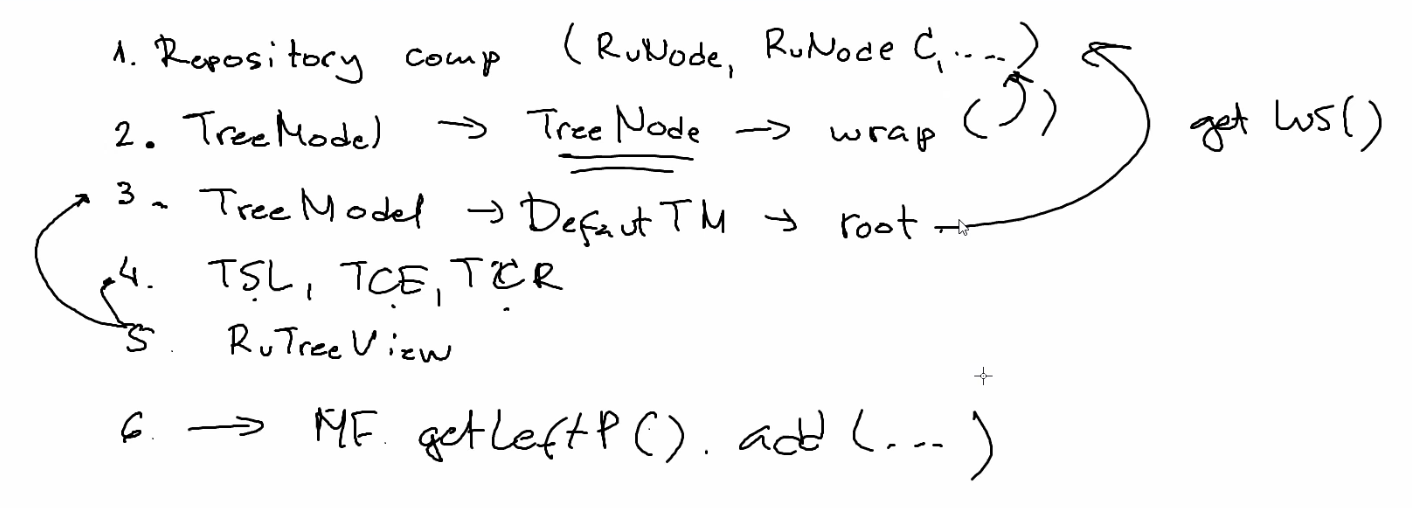 1. Repository comp (RuNode, RuNode C, ....)
2. TreeModel → TreeNode → wrap ( ) get WS()
3. TreeModel → Defaut TM → root
4. TSL, TCE, TCR
5. RuTreeView
6. → MF. getLeftP(). add (...)